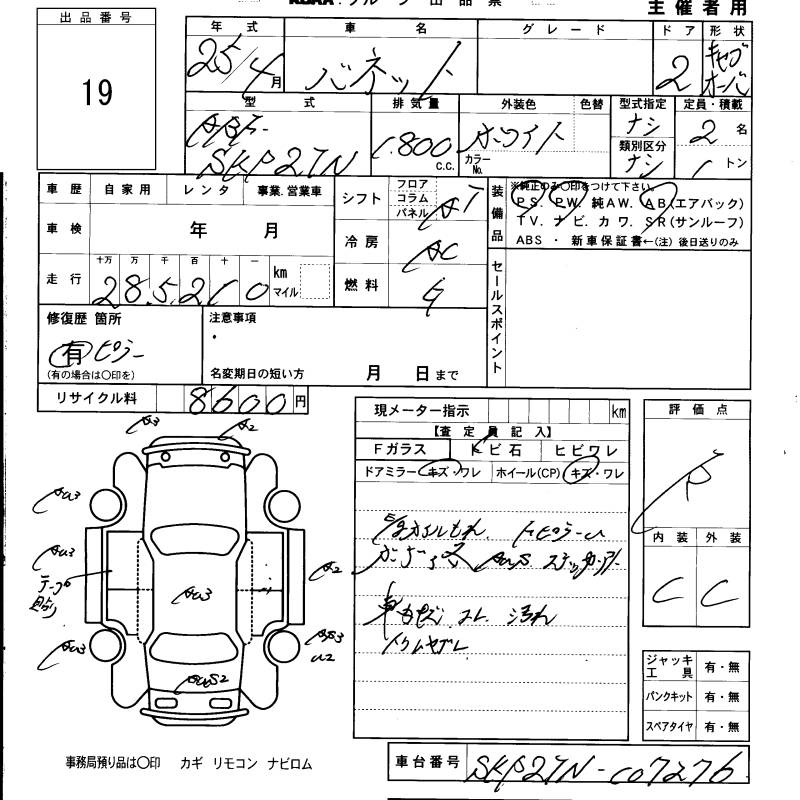 主催者用
出品番号
19
年式 車名 グレード ドア 形状
25/4月 バネット 2 キャブオーバ
型式 排気量 外装色 色替 型式指定 定員・積載
SKP27N 1.800 C.C. ホワイト カラーNo. ナシ 2名
類別区分 ナシ 1トン
車歴 自家用 レンタ 事業.営業車
シフト フロア コラム パネル AT
装備品 ※純正のみ○印をつけて下さい。
PS. PW. 純AW. AB(エアバック)
TV. ナビ. カワ. SR(サンルーフ)
ABS ・ 新車保証書←(注) 後日送りのみ
車検 年 月
冷房 AC
走行 十万 万 千 百 十 一 km マイル
285210
燃料
セールスポイント
修復歴 箇所
有 ピラー
(有の場合は○印を)
注意事項
名変期日の短い方 月 日まで
リサイクル料 8600円
現メーター指示 km
【査定員記入】
Fガラス トビ石 ヒビワレ
ドアミラー キズ・ワレ ホイール(CP) キズ・ワレ
評価点
R
内装 外装
C C
A3 A2
AU3
AU3
テープ貼り
AU3
AU3
A2
U2
E/gオイルもれ
コゲ 汚れ
ジャッキ工具 有・無
パンクキット 有・無
スペアタイヤ 有・無
事務局預り品は○印 カギ リモコン ナビロム
車台番号 SKP27N-007276